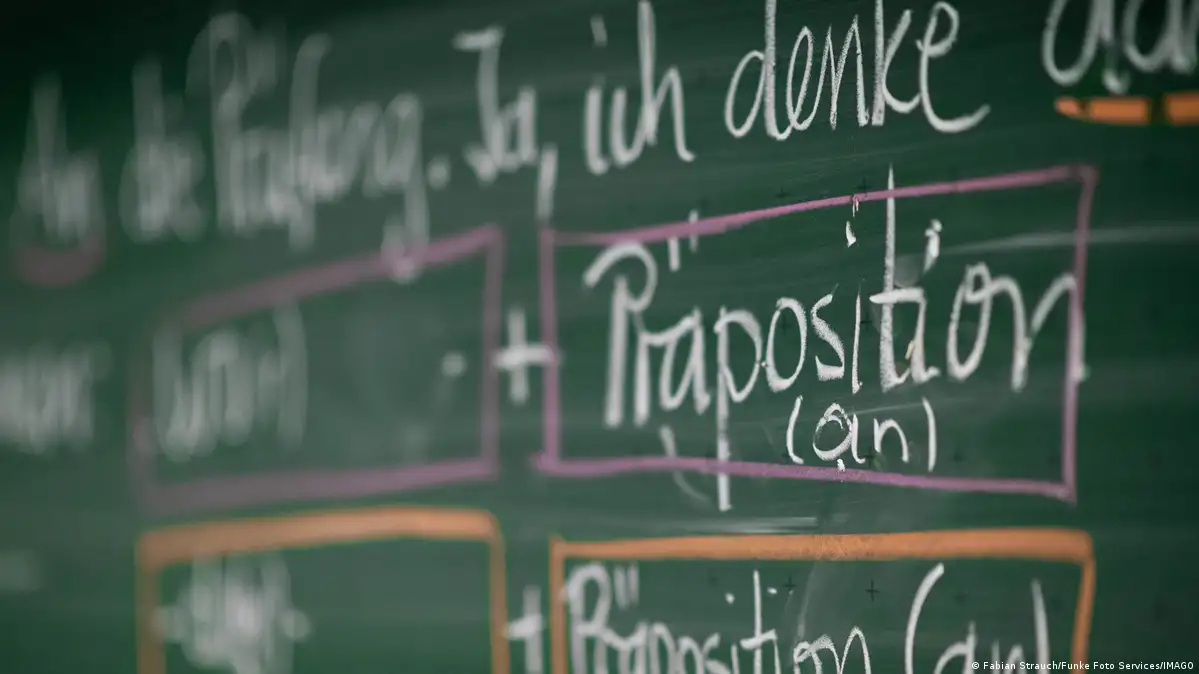 An die Prüfung. Ja, ich denke
wo(r) + Präposition
(an)
+ Präposition (an)
© Fabian Strauch/Funke Foto Services/IMAGO